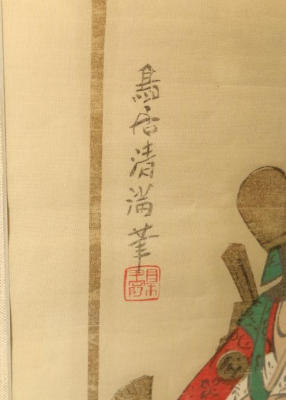 鳥居清満筆